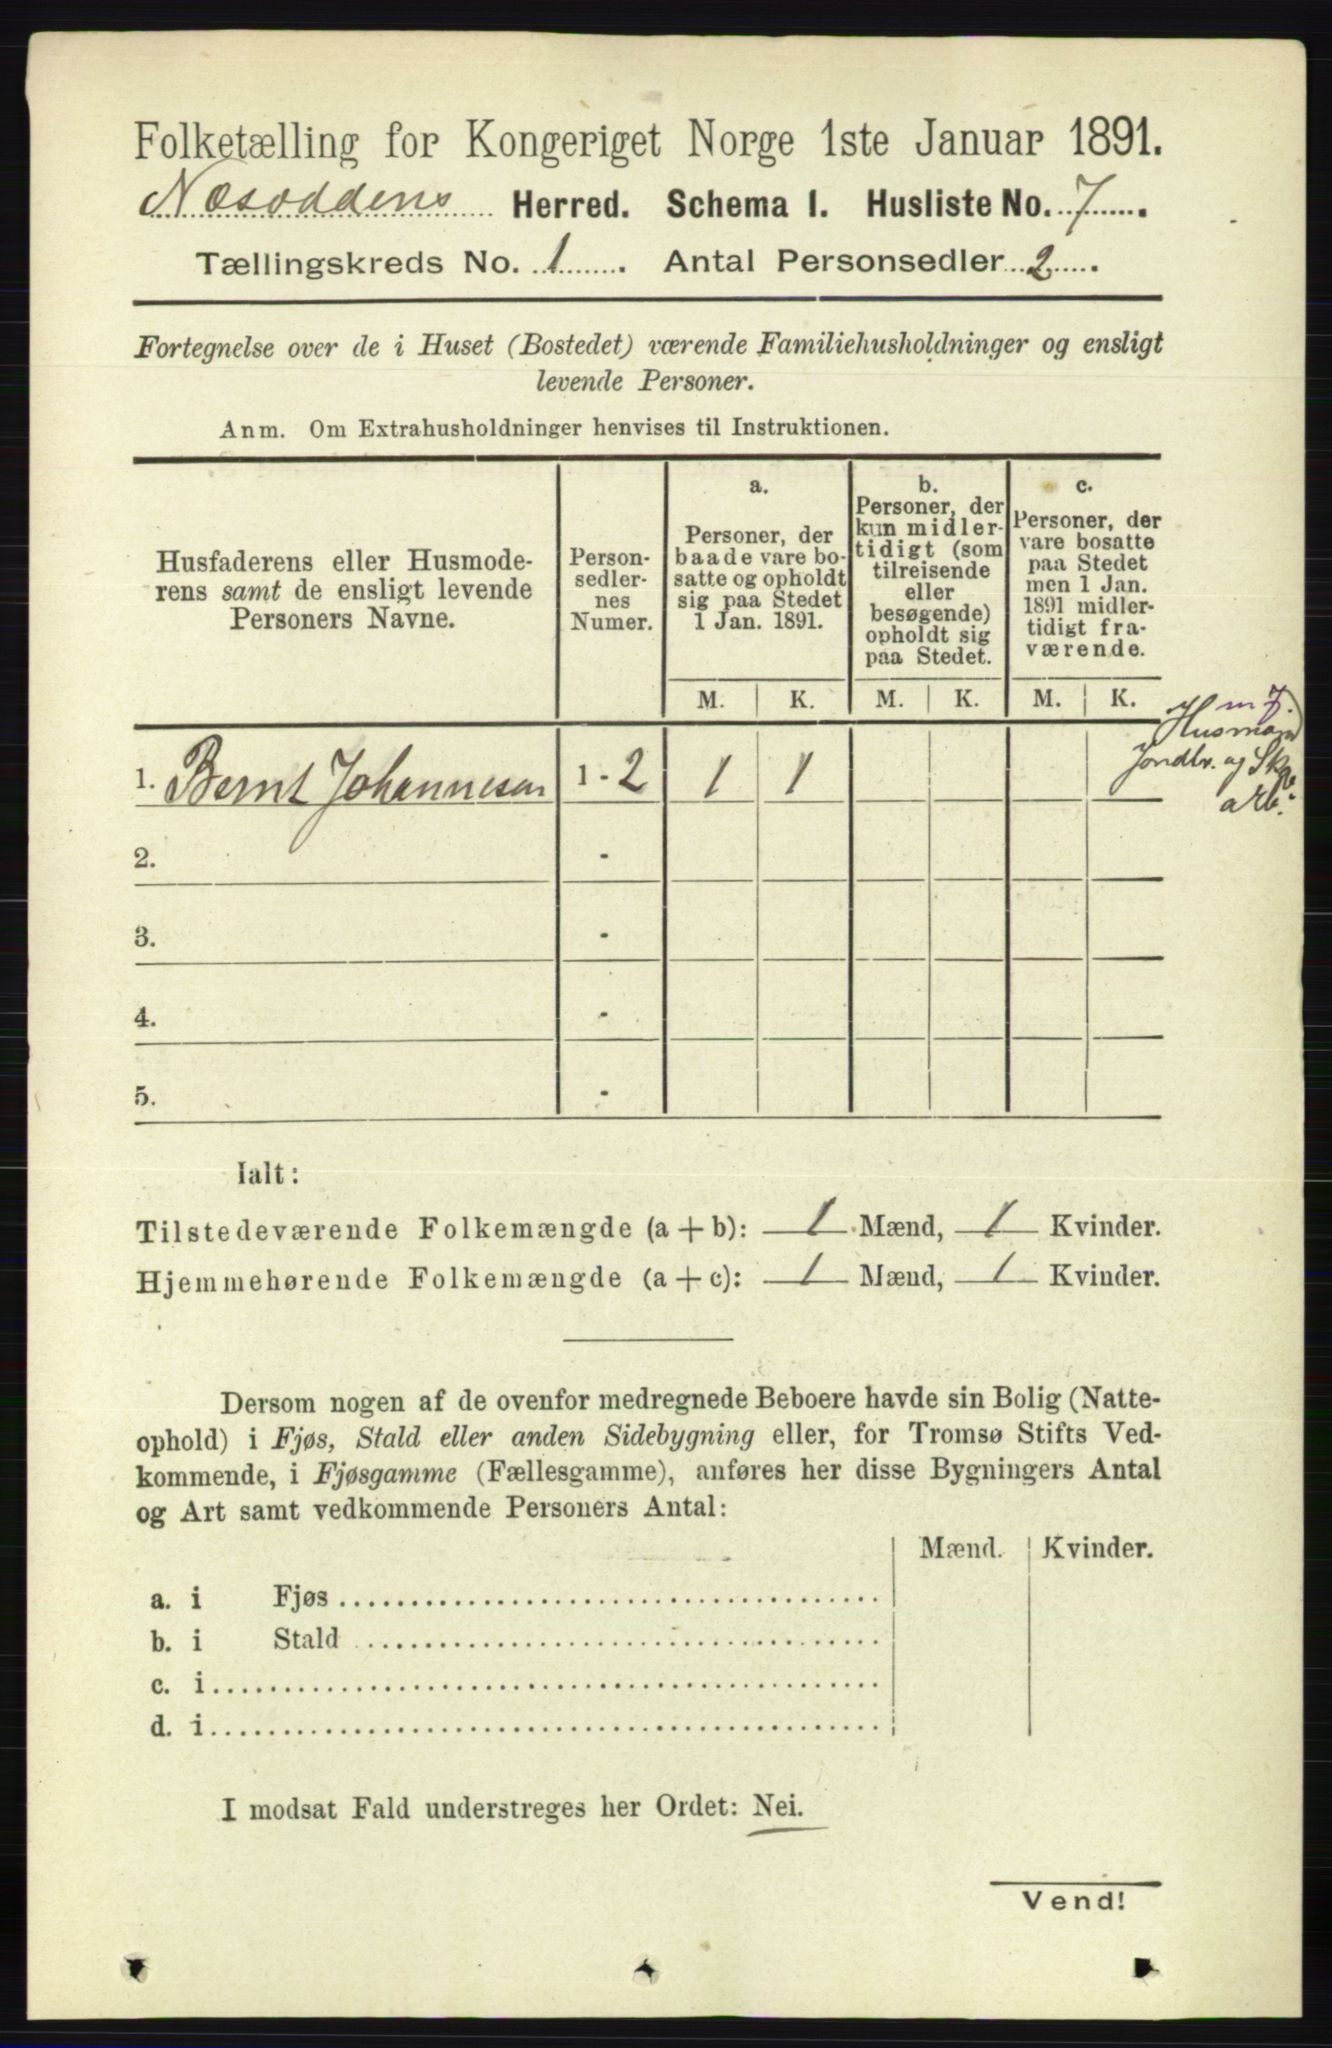 Folketælling for Kongeriget Norge 1ste Januar 1891.
Næsoddens Herred. Schema 1. Husliste No. 7
Tællingskreds No. 1. Antal Personsedler 2.
Fortegnelse over de i Huset (Bostedet) værende Familiehusholdninger og ensligt
levende Personer.
Anm. Om Extrahusholdninger henvises til Instruktionen.
Husfaderens eller Husmode-
rens samt de ensligt levende
Personers Navne.
Person-
sedler-
nes
Numer.
a.
Personer, der
baade vare bo-
satte og opholdt
sig paa Stedet
1 Jan. 1891.
b.
Personer, der
kun midler-
tidigt (som
tilreisende
eller
besøgende)
opholdt sig
paa Stedet.
c.
Personer, der
vare bosatte
paa Stedet
men 1 Jan.
1891 midler-
tidigt fra-
værende.
M. K. M. K. M. K.
m J.
Husmand
Jordbr. og
arb.
1. Bernt Johannesen 1 - 2 1 1
2. -
3. -
4. -
5. -
Ialt:
Tilstedeværende Folkemængde (a + b): 1 Mænd, 1 Kvinder.
Hjemmehørende Folkemængde (a + c): 1 Mænd, 1 Kvinder.
Dersom nogen af de ovenfor medregnede Beboere havde sin Bolig (Natte-
ophold) i Fjøs, Stald eller anden Sidebygning eller, for Tromsø Stifts Ved-
kommende, i Fjøsgamme (Fællesgamme), anføres her disse Bygningers Antal
og Art samt vedkommende Personers Antal:
Mænd. Kvinder.
a. i Fjøs
b. i Stald
c. i
d. i
I modsat Fald understreges her Ordet: Nei.
Vend!